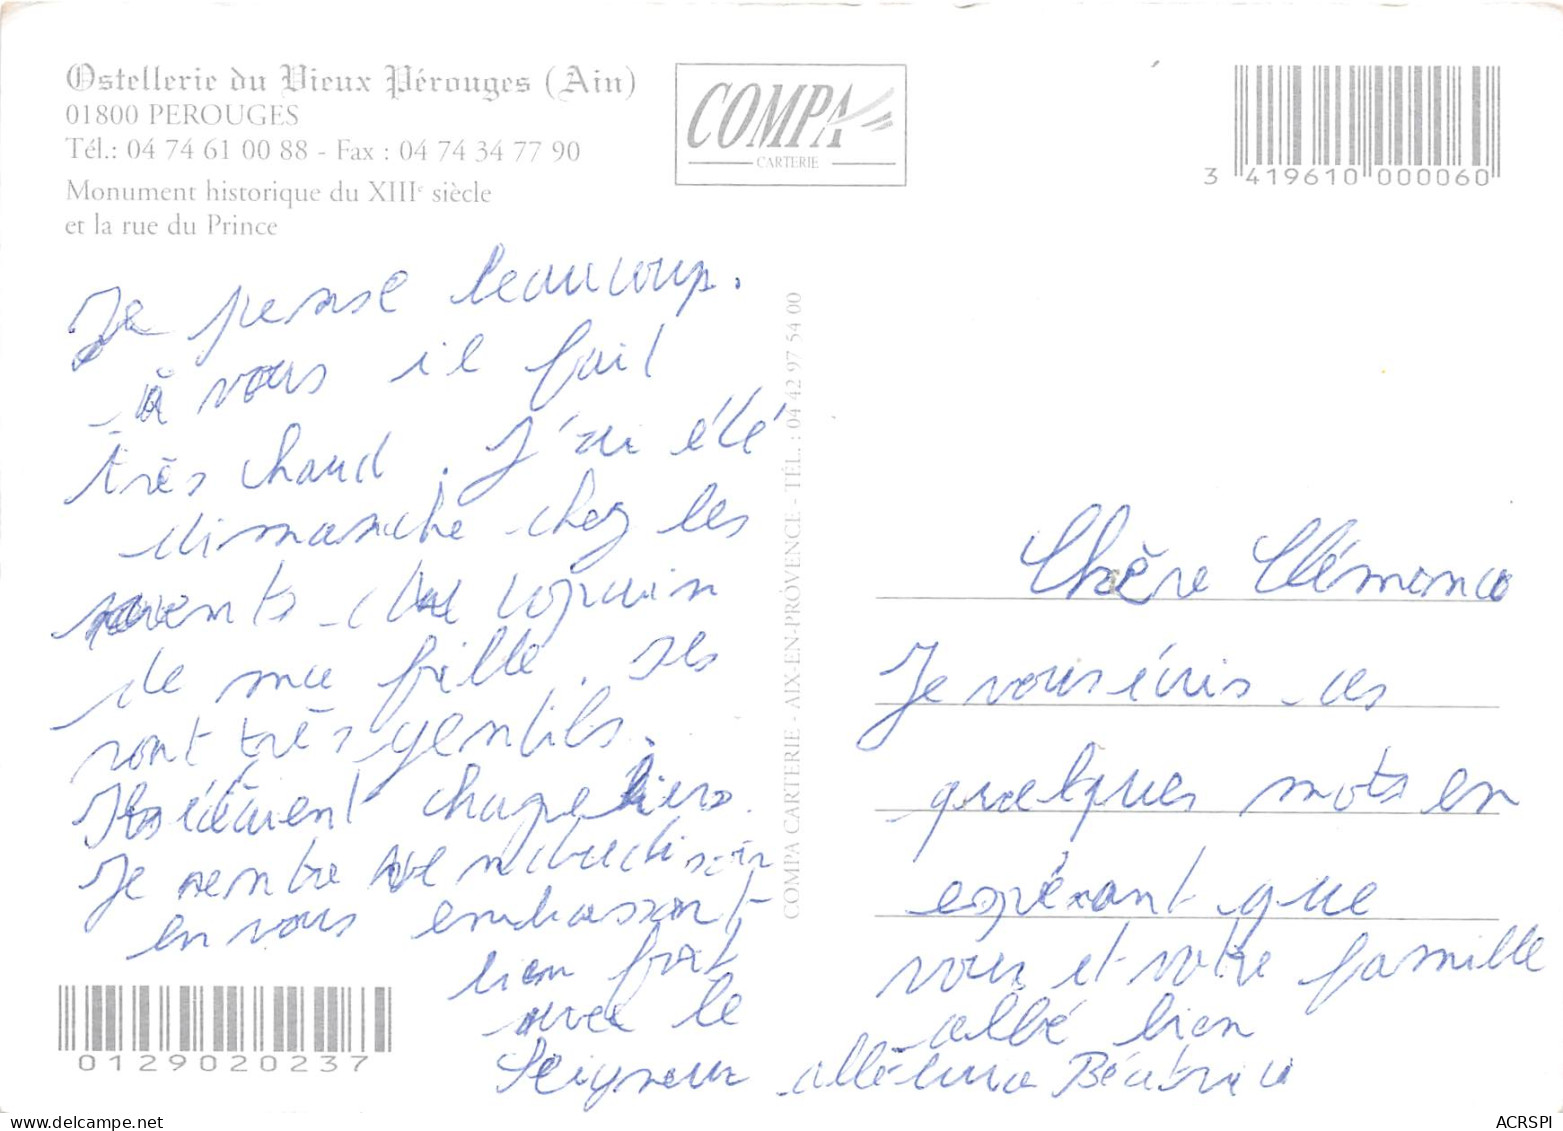 Ostellerie du Vieux Pérouges (Ain)
01800 PEROUGES
Tél.: 04 74 61 00 88 - Fax : 04 74 34 77 90
Monument historique du XIIIe siècle
et la rue du Prince
COMPA
CARTERIE
3 419610 000060
COMPA CARTERIE - AIX-EN-PROVENCE - TÉL. : 04 42 97 54 00
Chère Clémence
Je vous écris ces
quelques mots en
espérant que
vous et votre famille
allé bien
Je pense beaucoup.
à vous il fait
très chaud. J'ai été
dimanche chez les
copain
de ma fille. ses
sont très gentils.
chaque
Je rentre soir
en vous embrassant
bien fort
avec le
Seigneur alléluia Béatrice
0129020237
ACRSPI